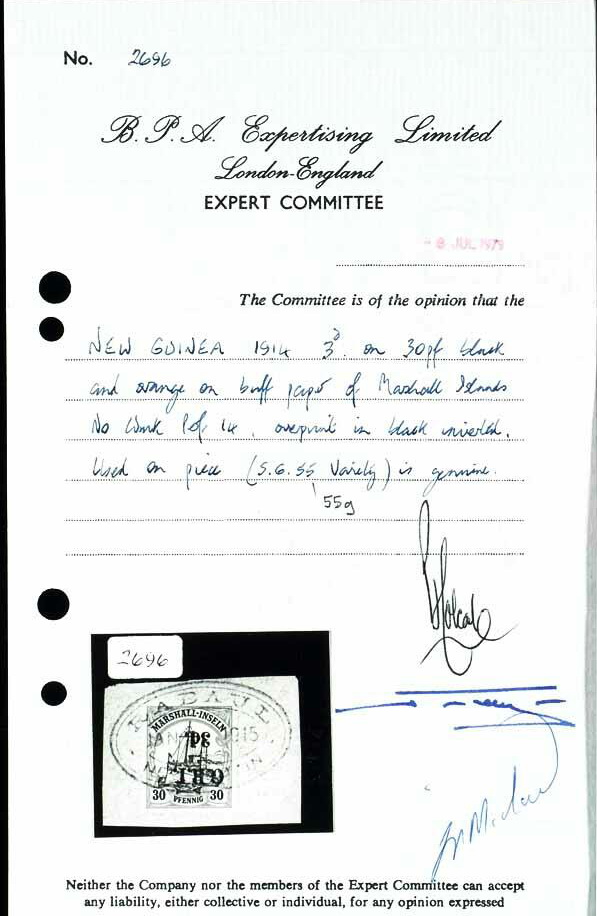 No. 2696
B.P.A. Expertising Limited
London-England
EXPERT COMMITTEE
- 8 JUL 1979
The Committee is of the opinion that the
NEW GUINEA 1914 3d. on 30pf black
and orange on buff paper of Marshall Islands
No Wmk Perf 14, overprint in black inverted.
Used on piece (S.G. 55 Variety) is genuine.
55g
2696
RABAUL
MARSHALL-INSELN
1915
3d.
G.R.I.
30 PFENNIG 30
Neither the Company nor the members of the Expert Committee can accept
any liability, either collective or individual, for any opinion expressed